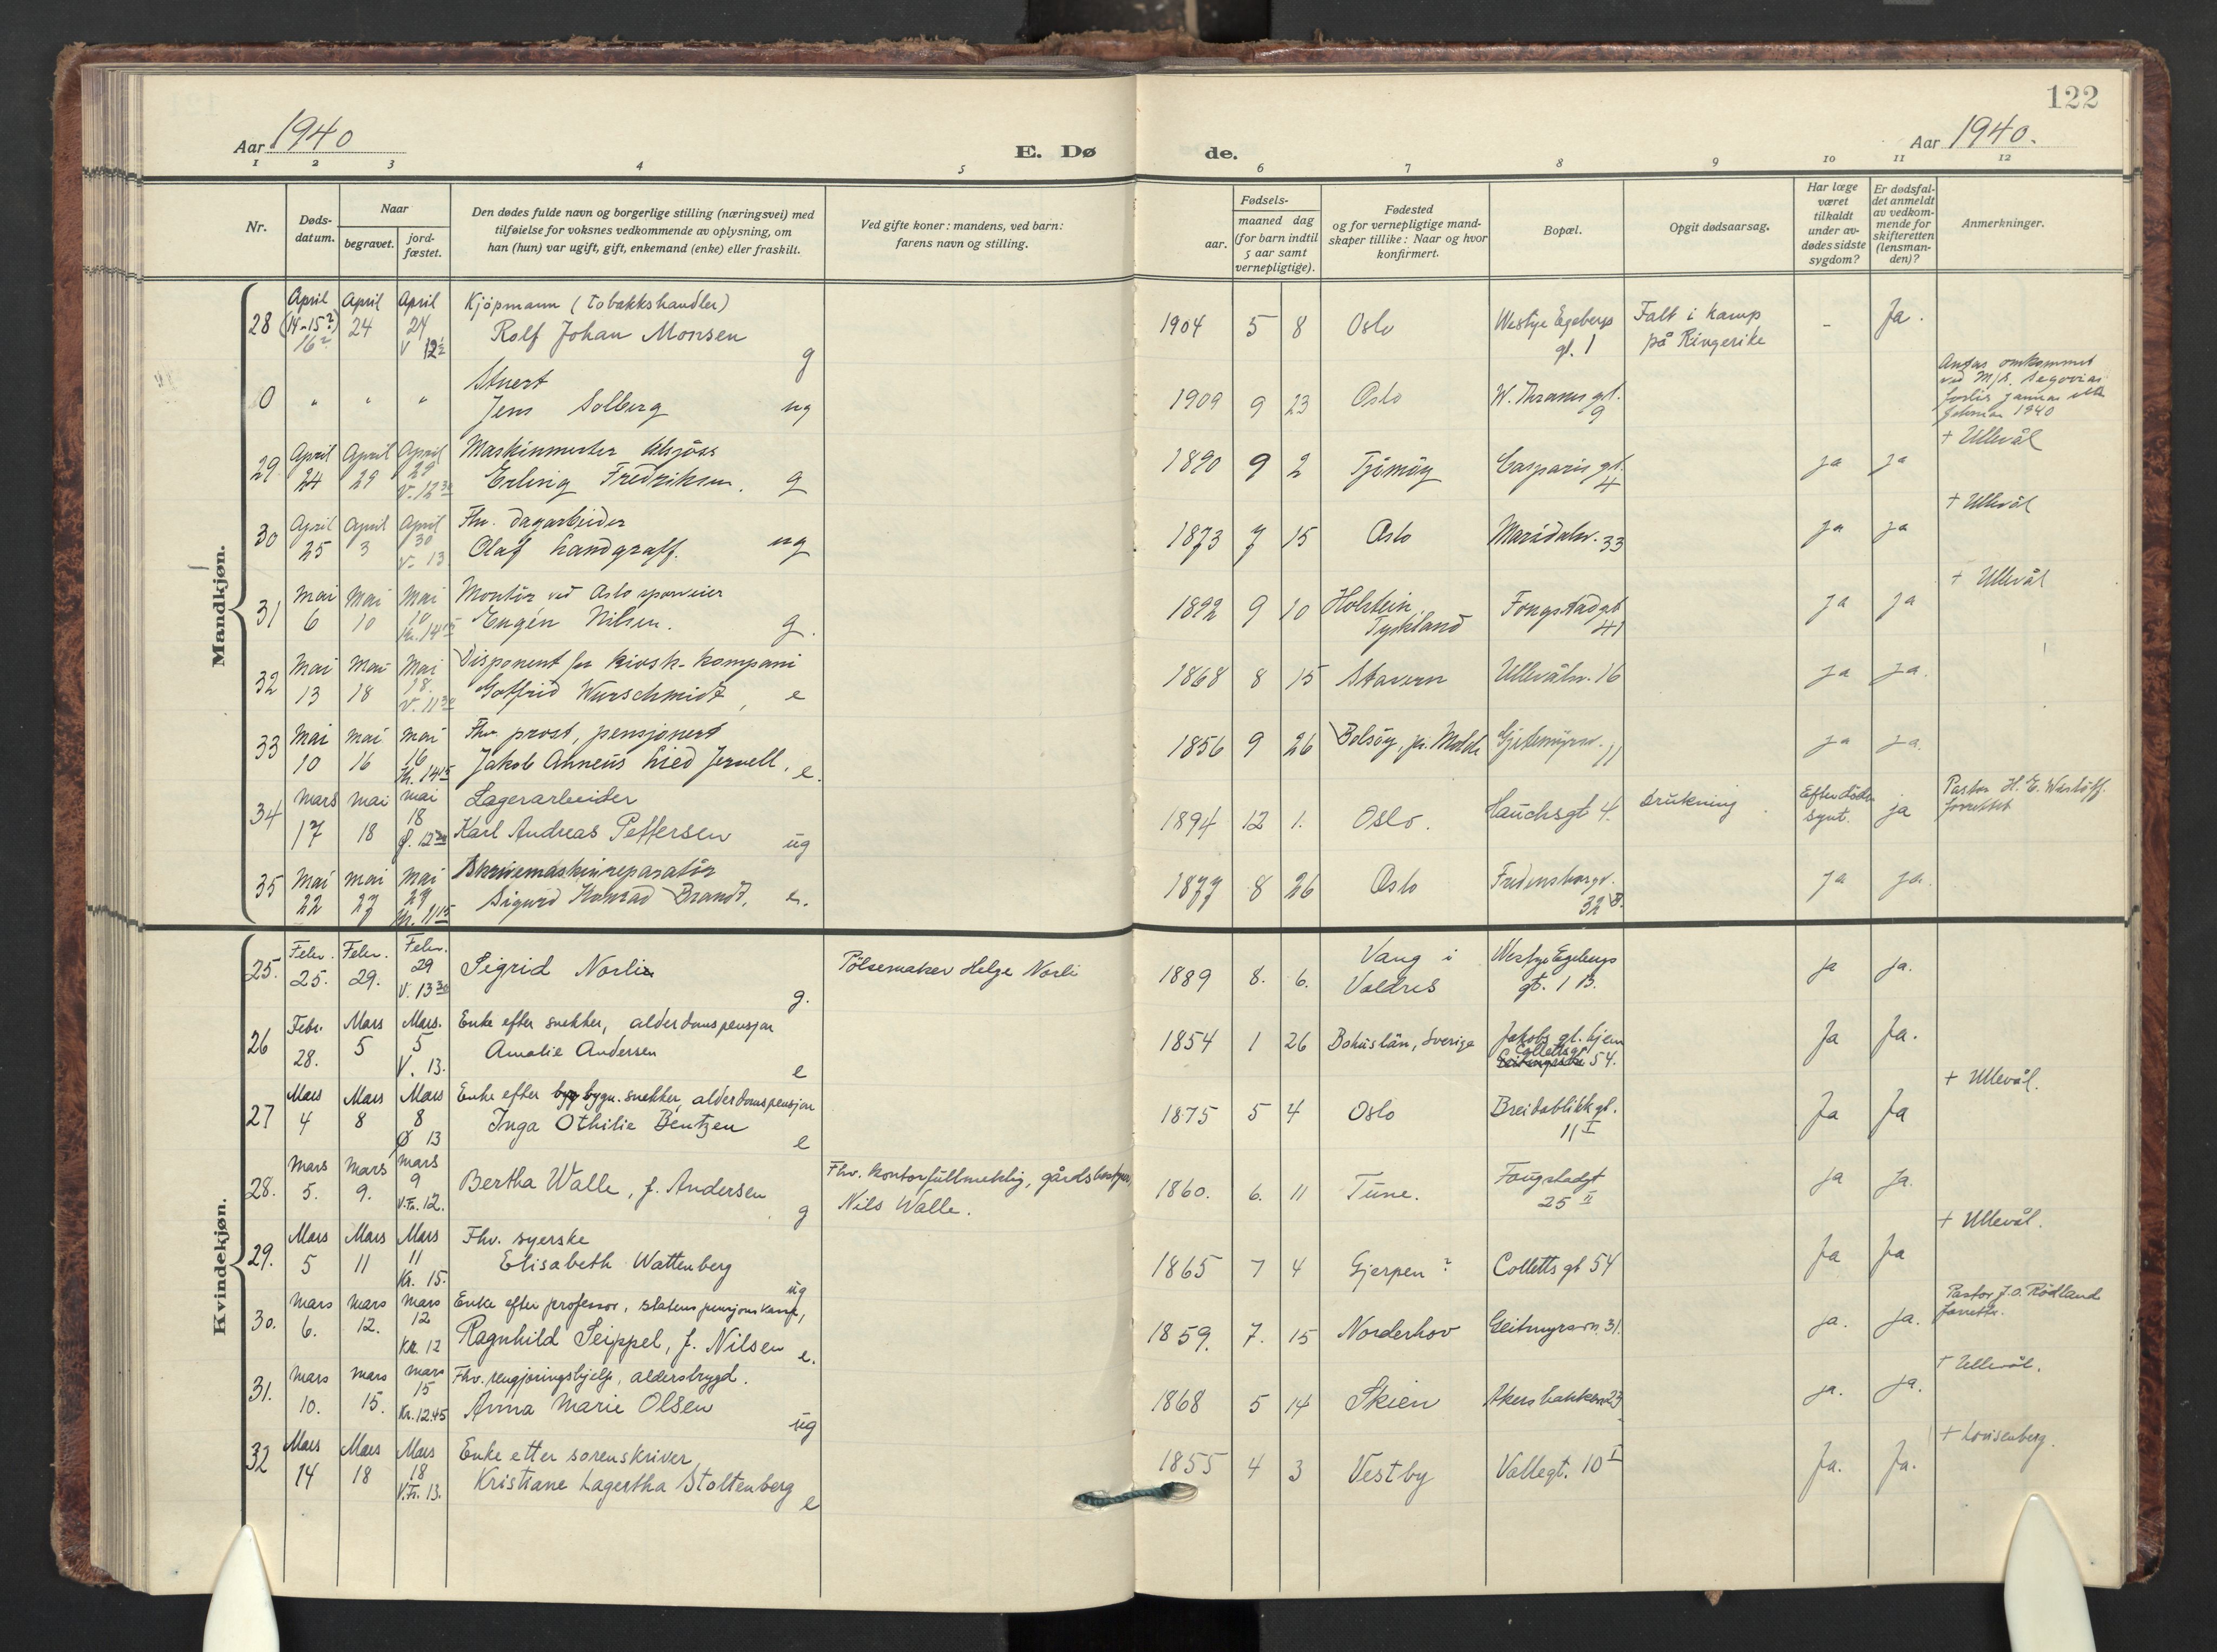 122
Aar 1940
E. Dø
de.
Aar 1940.
1 2 3 4 5 6 7 8 9 10 11 12
Nr.
Døds-
datum.
Naar
begravet.
jord-
fæstet.
Den dødes fulde navn og borgerlige stilling (næringsvei) med
tilføielse for voksnes vedkommende av oplysning, om
han (hun) var ugift, gift, enkemand (enke) eller fraskilt.
Ved gifte koner: mandens, ved barn:
farens navn og stilling.
Fødsels-
aar.
maaned dag
(for barn indtil
5 aar samt
vernepligtige).
Fødested
og for vernepligtige mand-
skaper tillike: Naar og hvor
konfirmert.
Bopæl.
Opgit dødsaarsag.
Har læge
været
tilkaldt
under av-
dødes sidste
sygdom?
Er dødsfal-
det anmeldt
av vedkom-
mende for
skifteretten
(lensman-
den)?
Anmerkninger.
Mandkjøn.
April April April Kjöpmann (Tobakkshandler)
28 (14-15?) 24 24 Rolf Johan Monsen g 1904 5 8 Oslo Westye Egebergs Falt i kamp - Ja.
16? V 12½ gt. 1 på Ringerike
Stuert
0 " " " Jens Solberg ug 1909 9 23 Oslo W. Thranes gt. 9
Antas omkommet
ved M/S. Segovias
forlis januar eller
februar 1940
April April April Maskinmester
29 24 29 29 Erling Fredriksen. g 1890 9 2 Tjömöy Casparis gt. 4 ja ja + Ullevål
V. 12 30
April April April Fhv. dagarbeider
30 25 3 30 Olaf Landgraff. ug 1873 7 15 Oslo Maridalsv. 33 ja ja + Ullevål
V. 13
Mai Mai Mai Montör ved Oslo sporveier
31 6 10 10 Eugén Nilsen. g. 1892 9 10 Holstein, Tyskland Fougstadgt 41 ja ja + Ullevål
Kr. 14 15
Mai Mai Mai Disponent for kiosk-kompani
32 13 18 18. Gotfrid Wurschmidt, e 1868 8 15 Stavern Ullevålsv. 16 ja ja.
V. 11 30
Mai mai mai Fhv. prost, pensjonert
33 10 16 16 Jakob Anneus Lied Jervell. e. 1856 9 26 Bolsöy, pr. Molde Gjetemyrsv. 11 ja ja.
Kr. 14 15
Mars mai mai Lagerarbeider
34 17 18 18 Karl Andreas Pettersen ug 1894 12 1. Oslo. Hauchsgt 4. drukning Efter döden synt. ja Pastor H. E. forrettet
Ø. 12 30
Mai mai mai Skrivemaskinreparatör
35 22 27 27 Sigurd Konrad Brandt. e. 1877 8 26 Oslo Fredensborgv. 32 B. ja ja.
Kr. 11 15
Kvindekjøn.
Febr. Febr. Febr.
25. 25. 29. 29 Sigrid Norli g. Pölsemaker Helge Norli 1889 8. 6. Vang i Valdres Westye Egebergs gt. 1 B. ja ja.
V. 13 30
Febr. Mars Mars. Enke efter snekker, alderdomspensjon
26 28. 5 5 Amalie Andersen e 1854 1 26 Bohuslän, Sverige Jakobs gt. hjem Collettsgt 54. Ja Ja.
V. 13.
Mars Mars Mars Enke efter byg bygn. snekker, alderdomspensjon
27 4 8 8 Inga Othilie Bentzen e 1875 5 4 Oslo Breidablikk gt. 11 I Ja Ja + Ullevål.
Ø 13
Mars Mars Mars
28. 5. 9. 9 Bertha Walle, f. Andersen g Fhv. kontorfullmektig, gårdsbestyrer, Nils Walle. 1860. 6. 11 Tune. Fougstadgt 25 II ja ja.
V.Fr. 12.
Mars Mars Mars Fhv. syerske
29. 5 11 11 Elisabeth Wattenberg ug 1865 7 4 Gjerpen? Colletts gt 54 Ja Ja + Ullevål.
Kr. 15.
Mars Mars Mars Enke efter professor, statens pensjonskasse,
30. 6. 12. 12 Ragnhild Seippel, f. Nilsen e. 1859. 7. 15 Norderhov Geitmyrsvn. 31. ja. ja. Pastor J.O. Rödland forrettr.
Kr. 12
Mars Mars Mars Fhv. rengjöringshjelp, alderstrygd.
31. 10. 15. 15 Anna Marie Olsen ug 1868 5 14 Skien Akersbakken 23 ja. ja. + Ullevål.
Kr. 12.45
Mars Mars Mars Enke etter sorenskriver
32 14 18 18 Kristiane Lagertha Stoltenberg e 1855 4 3 Vestby Vallegt. 10 I Ja. Ja. + Lovisenberg.
V.Fr. 13.